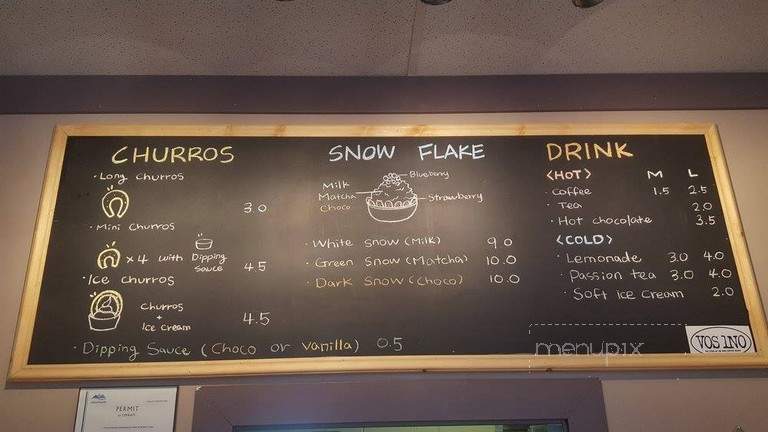 CHURROS
· Long churros
3.0
· Mini Churros
×4 with Dipping Sauce 4.5
· Ice churros
Churros
+
Ice cream
4.5
· Dipping Sauce (Choco or Vanilla) 0.5
SNOW FLAKE
Blueberry
Milk
Matcha
Choco
Strawberry
· White Snow (Milk) 9.0
· Green Snow (Matcha) 10.0
· Dark Snow (Choco) 10.0
DRINK
<HOT> M L
· Coffee 1.5 2.5
· Tea 2.0
· Hot chocolate 3.5
<COLD>
· Lemonade 3.0 4.0
· Passion tea 3.0 4.0
· Soft Ice Cream 2.0
menupix
VOS INO
PERMIT